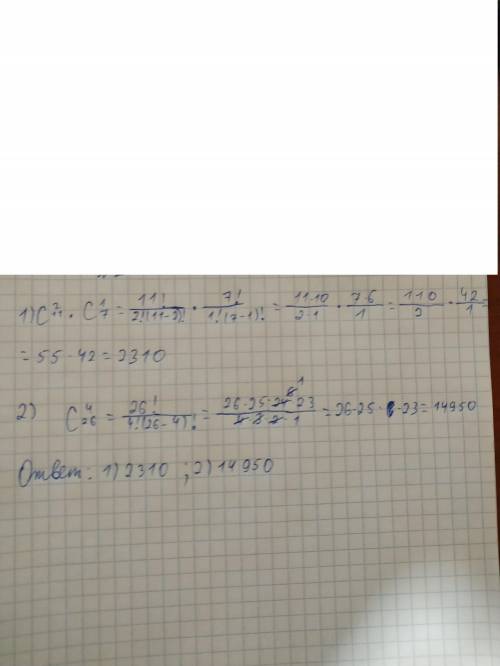 1) C²₁₁ · C¹₇ = 11!/2!(11-2)! · 7!/1!(7-1)! = 11·10/2·1 · 7·6/1 = 110/2 · 42/1 =
= 55 · 42 = 2310
2) C⁴₂₆ = 26!/4!(26-4)! = 26·25·24·23/4·3·2·1 = 26·25· ·23 = 14950
Ответ: 1) 2310 ; 2) 14950